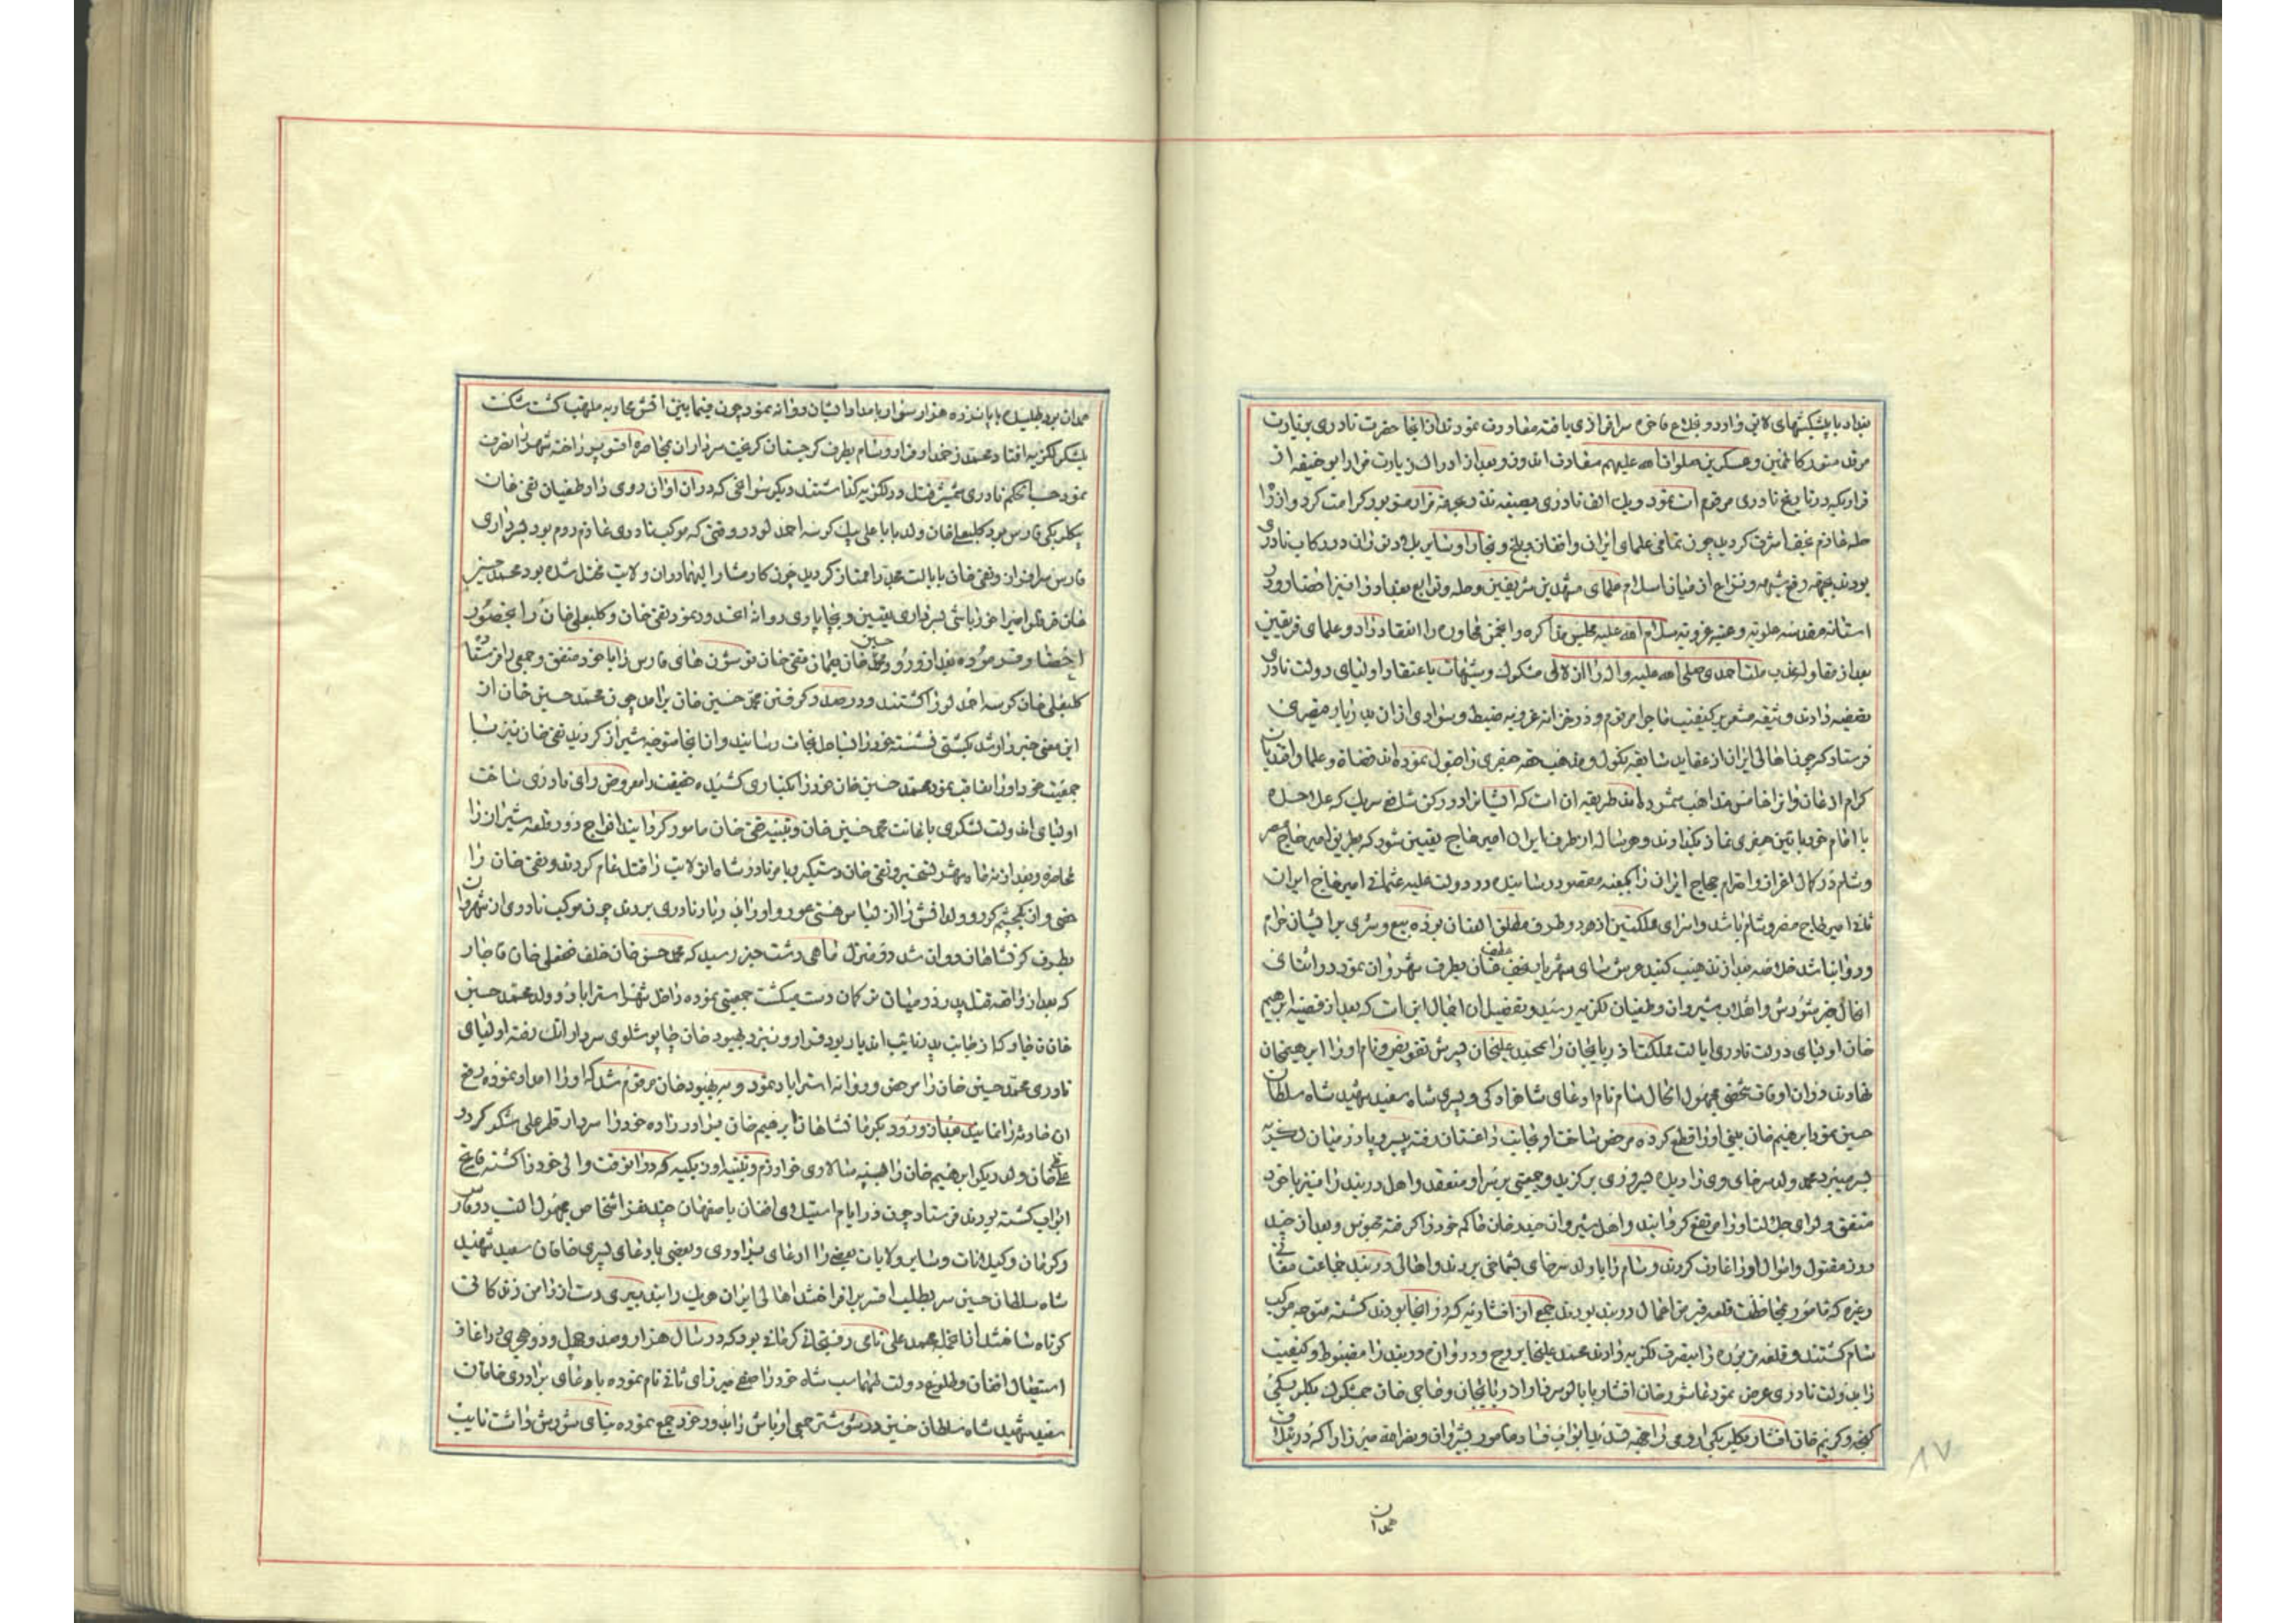 بغداد با پیشکشهای لایق وارد و بخلاع فاخره سرافرازی یافته معاودت نمودند از آنجا حضرت نادری بزیارت
مرقد منور کاظمین و عسکریین صلوات الله علیهم و بعد از ادراک زیارت مزار ابو حنیفه از
قراریکه در تاریخ نادری مرقوم است نمود و یک الف نادری بصیغه نذر بجهة مزار مزبور کرامت کرد و از راه
حله عازم نجف اشرف گردید چون تمامی علمای ایران و افغان و بلخ و بخارا و سایر بلاد توران در رکاب نادری
بودند بجهة رفع شبهه و نزاع از میان اسلام علمای مشهدین شریفین و حله و توابع بغداد را نیز احضار و در
آستانه مقدسه علویه و عتبه غرویه سلام الله علیه مجلس مذاکره و انجمن محاوره را انعقاد داد و علمای فریقین
بعد از مقاوله مذهب ملت احمدی صلی الله علیه و اله را از لالی شکوک و شبهات باعتقاد اولیای دولت نادری
تصفیه دادند و وثیقه مشعر بر کیفیت ماجرا مرقوم و در خزانه غرویه ضبط و سوادی از آن بدربار قیصری
فرستاد که چون اهالی ایران از عقاید سابقه نکول و مذهب حقه جعفری را قبول نموده اند قضاة و علما و افندیان
کرام اذعان و آنرا خامس مذاهب شمرده اند طریقه آن است که ایشان را در رکن شافعی شریک که علاحده
با امام خود بآئین جعفری نماز بگذارند و هر ساله از طرف ایران امیر حاج تعیین شود که بطریق امیر حاج مصر
و شام در کمال اعزاز و احترام حجاج ایران را بکعبه مقصود رسانیده در دولت علیه عثمانی امیر حاج ایران
ثانی امیر حاج مصر و شام باشد و اسرای مملکتین از هر دو طرف مطلق العنان بوده بیع و شری بر ایشان حرام
و روا نباشد خلاصه بعد از تذهیب گنبد عرش سای مهر بارید نجف عنان بطرف شهروان نمود در اثنای
انحال خبر شورش و اختلاف شیروان و طغیان لکزیه رسید و تفصیل آن اجمال این است که بعد از قضیه ابرهیم
خان اولیای دولت نادری ایالت مملکت آذربایجان را بمحمد علیخان پسرش تفویض و نام او را ابرهیمخان
نهادند در آن اوقات شخصی مجهول الحال سام نام ادعای شاهزادگی و پسری شاه سعید شهید شاه سلطان
حسین نمود ابرهیم خان بینی او را قطع کرده مرخص ساخت او بجانب داغستان رفته بی سر و پا در میان لکزیه
بسر میبرد محمد ولد سرخای وی را دیده بسروری برگزید و جمعیتی بر سر او منعقد و اهل دربند را نیز با خود
متفق و لوای جلالت او را مرتفع گردانیدند و اهل شیروان حیدر خان حاکم خود را گرفته محبوس و بعد از چند
روز مقتول و اموال او را غارت کردند و سام را با ولد سرخای بشماخی بردند و اهالی دربند جماعت مغانی
و غیره که مامور بمحافظت قلعه قبر من اعمال دربند بودند جمعی از افشاریه که در آنجا بودند کشته متوجه موکب
سام گشتند و قلعه مزبوره را بتصرف لکزیه دادند محمد علیخان بروج و دروازه دربند را مضبوط و کیفیت
را بدولت نادری عرض نمود عاشور خان افشار بابالو سردار آذربایجان و حاجی خان چمشگزک بیگلربیگی
گنجه و کریم خان افشار بیگلربیگی ارومی را بجهة فتنه آن ابواب فساد مامور بشیروان و نصرالله میرزا را که در بغداد
همدان
همدان بود طلبیده با پانزده هزار سوار بامداد ایشان روانه نمود چون فیمابین اقشو محاربه ملتهب گشت شکست
بلشکر لکزیه افتاد محمد زخمدار فرار و سام بطرف گرجستان گریخت سرداران بمحاصره اقشو پرداخته شهر را تصرف
نمود حسب الحکم نادری شمشیر قتل در لکزیه گذاشتند دیگر سوانحی که در آن اوان روی داد طغیان تقی خان
بیگلربیگی فارس بود کلبعلی خان ولد بابا علی بیک کوسه احمد لو در وقتی که موکب نادری عازم روم بود بسرداری
فارس سرافراز و تقی خان بایالت مجددا ممتاز گردید چون کار مشارالیهما در آن ولایت مختل شده بود محمد حسین
خان قرقلو امیر آخور باشی بسرداری تعیین و بچاپاری روانه آنحدود نمود تقی خان و کلبعلی خان را بحضور
احضار فرموده بعد از ورود محمد حسین خان بعمان تقی خان قوشون های فارس را با خود متفق و جمعی را فرستاده
کلبعلی خان کوسه احمد لو را کشتند و در صدد گرفتن محمد حسین خان برآمد چون محمد حسین خان از
این معنی خبردار شد بکشتی نشسته خود را بساحل نجات رسانید و از آنجا متوجه شیراز گردید تقی خان نیز با
جمعیت خود او را تعاقب نمود محمد حسین خان خود را بکناری کشیده حقیقت را معروض رای نادری ساخت
اولیای آندولت لشکری باعانت محمد حسین خان و تنبیه تقی خان مامور گردانید افواج در قلعه شیراز را
محاصره و بعد از سه ماه شهر تسخیر و تقی خان دستگیر و بامر نادر شاه آن ولایت را قتل عام کردند و تقی خان را
خصی و از یک چشم کور و ولد اقش را از لباس هستی عور و او را بدربار نادری بردند چون موکب نادری از شهروان
بطرف کرمانشاهان روان شد در منزل ماهی دشت خبر رسید که محمد حسن خان خلف فتحعلی خان قاجار
که بعد از واقعه قتل پدر در میان ترکمان دست میگشت جمعیتی نموده داخل شهر استراباد و ولد محمد حسین
خان قاجار که از جانب پدر نایب آندیار بود فرار و نزد بهبود خان چاپوشلوی سردار اتک رفته اولیای
نادری محمد حسین خان را مرخص و روانه استراباد نمود و به بهبود خان مرقوم شد که او را امداد نموده رفع
آن حادثه را نمایند بعد از ورود بکرمانشاهان ابرهیم خان برادر زاده خود را سردار قلمرو علی شکر کرد و
علی خان ولد دیگر ابرهیم خان را بسپه سالاری خوارزم و تنبیه اوزبکیه که در آنوقت والی خود را کشته فاتح
ابواب کشته بودند فرستاد چون در ایام استیلای افغان باصفهان چند نفر اشخاص مجهول النسب در فارس
و کرمان و گیلانات و سایر ولایات بعضی را ادعای برادری و بعضی بادعای پسری خاقان سعید شهید
شاه سلطان حسین سر بطلب افسر برافراختند اهالی ایران هر یک را بتدبیری دست از دامن زندگانی
کوتاه ساختند از آنجمله محمد علی نامی رفسنجانی کرمانی بود که در سال هزار و صد و چهل و دو هجری در آغاز
استیصال افغان و طلوع دولت طهماسب شاه خود را صفی میرزای ثانی نام نموده بادعای برادری خاقان
سعید شهید شاه سلطان حسین در شوشتر جمعی اوباش را بدور خود جمع نموده بنای شورش داشت نایب